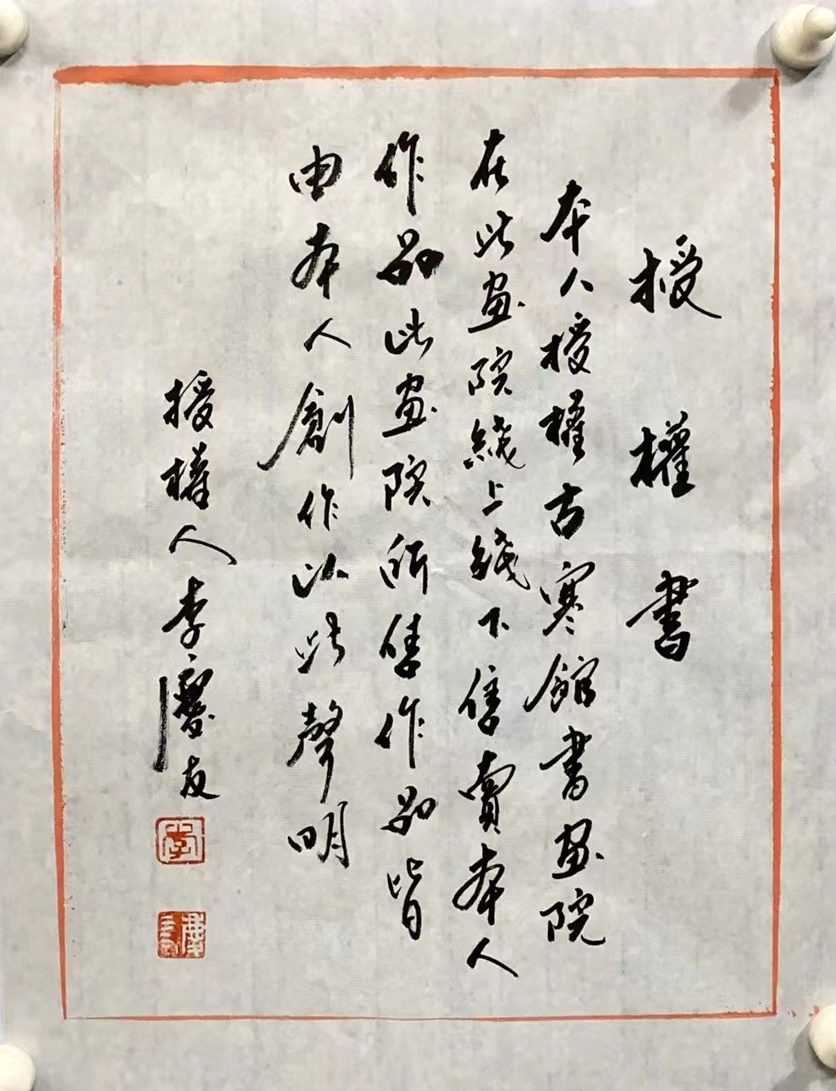 授權書
本人授權古寒館书画院
在此画院线上线下售賣本人
作品此画院所售作品皆
由本人創作以此聲明
授權人李慶友
李